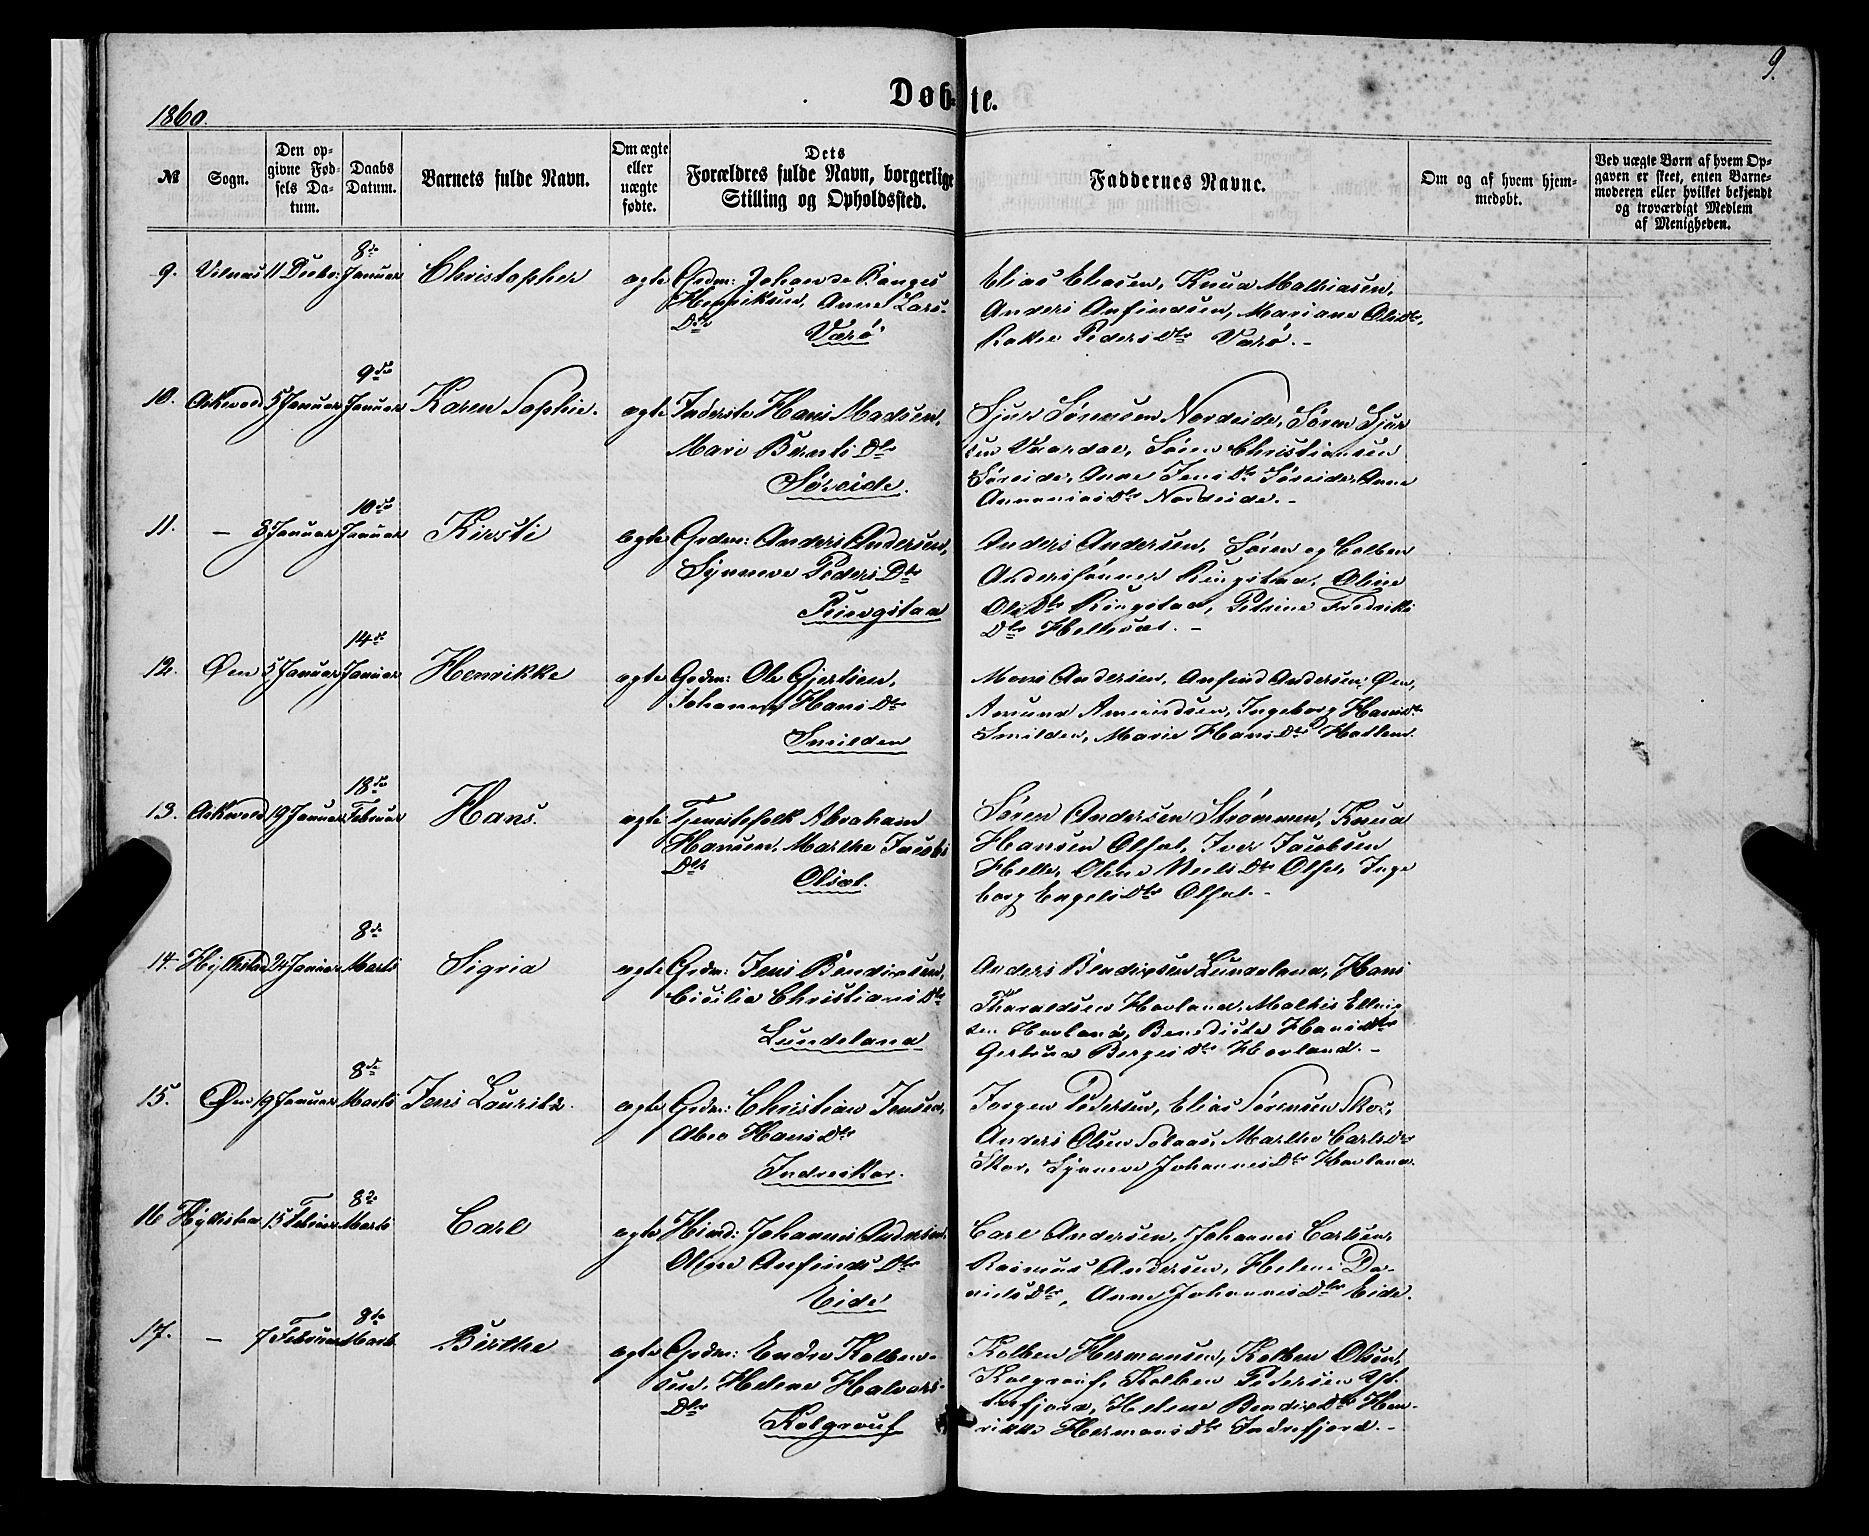 9.
1860.
Døbte.
№
Sogn.
Den opgivne Fødsels Datum.
Daabs Datum.
Barnets fulde Navn.
Om ægte eller uægte fødte.
Dets Forældres fulde Navn, borgerlige Stilling og Opholdssted.
Faddernes Navne.
Om og af hvem hjemmedøbt.
Ved uægte Børn af hvem Opgaven er skeet, enten Barnemoderen eller hvilket bekjendt og troværdigt Medlem af Menigheden.
9. Vilnæs 11 Decbr: 8de Januar Christopher ægte Grdm: Johan de Ranges
Henriksen, Anne Lars-
Dtr
Værø
Elias Eliasen, Knud Mathiasen,
Anders Anfindsen, Mariane Ols Dtr,
Peders Dtr Værø.-
10. Askvold 5 Januar 9de Januar Karen Sophie. ægte Inderste Hans Madsen,
Mari Bents Dtr
Søreide.
Sjur Sørensen Nordeide, Søren Sjur
sen Vaardal, Søren Christiansen
Søreide, Anne Jens Dtr Søreide, Anne
Ananias Dtr Nordeide.-
11. - 8 Januar 10de Januar Kirsti ægte Grdm: Anders Andersen,
Synneve Peders Dtr
Ringstad
Anders Andersen, Søren og Colben
Anderssønner Ringstad, Oline
Ols Dtr Ringstad, Petrine Fredriks
Dtr Hellesæt.-
12. Øen 5 Januar 14de Januar Henrikke ægte Grdm: Ole Gjertsen,
Johanna Hans Dtr
Smilden
Mons Andersen, Anfind Andersen, Øen,
Amund Amundsen, Ingeborg Hans Dtr
Smilden, Marie Hans Dtr
13. Askvold 19 Januar 18de Februar Hans. ægte Tjenestefolk Abraham
Hansen, Marthe Jacobs
Dtr
Olset.
Søren Andersen Strømmen, Knud
Hansen Olset, Iver Jacobsen
Helle, Oline Neels Dtr Olset, Inge
borg Engels Dtr Olset.-
14. Hyllestad 24 Januar 8de Marts Sigrid ægte Grdm: Jens Bendixsen,
Cicilia Christians Dtr
Lundeland
Anders Bendixsen Lundeland, Hans
Tharaldsen Hovland, Mathis Elling
sen Hovland, Benedicte Hans Dtr
Gertrud Berges Dtr Hovland.-
15. Øen 19 Januar 8de Marts Jens Lauritz. ægte Grdm: Christian Jensen,
Abeo Hans Dtr
Indreskor.
Jørgen Pedersen, Elias Sørensen Skor,
Anders Olsen Solaas, Marthe Carls Dtr
Skor, Synneve Johannes Dtr Hovland.
16 Hyllestad 15 Februar 8de Marts Carl ægte Huusmd: Johannes Andersen,
Oline Anfinds Dtr
Eide
Carl Andersen, Johannes Carlsen,
Rasmus Andersen, Helene Da-
niels Dtr, Anne Johannes Dtr Eide.
17. - 7 Februar 8de Marts Birthe ægte Grdm: Endre Kolben-
sen, Helene Halvors-
Dtr
Kolgrouf
Kolben Hermansen, Kolben Olsen,
Kolgrouf, Kolben Pedersen Yt
terfjord, Helene Bendix Dtr Hen-
rikke Hermans Dtr Indrefjord.-